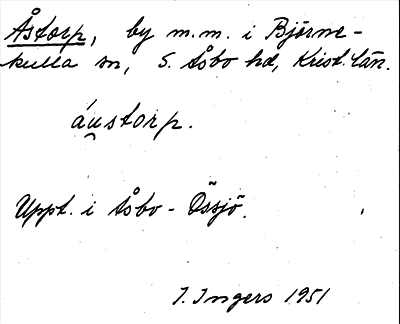 Åstorp, by m.m. i Björne-
kulla sn, S. Åsbo hd, Krist. län.
áu̯storp.
Uppt. i Åsbo-Össjö.
I. Ingers 1951